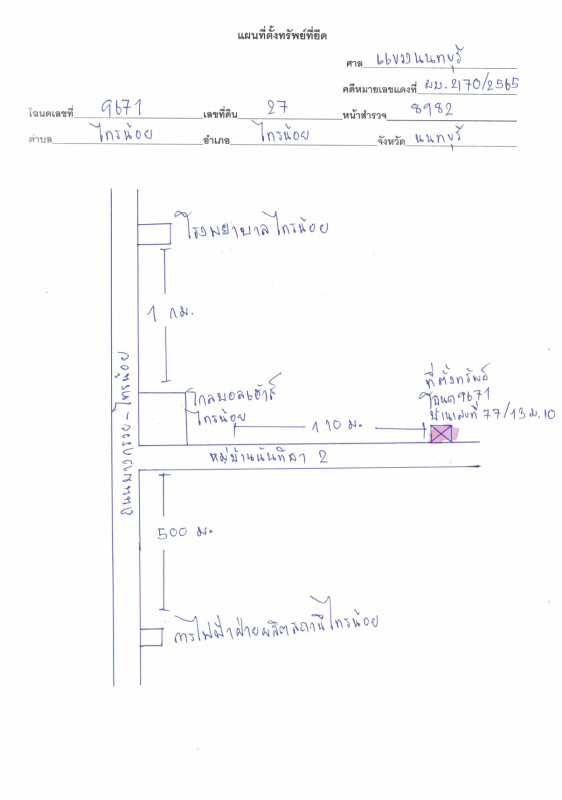 แผนที่ตั้งทรัพย์ที่ยึด
ศาล แขวงนนทบุรี
คดีหมายเลขแดงที่ ผบ. 2170/2565
โฉนดเลขที่ 9671 เลขที่ดิน 27 หน้าสำรวจ 8982
ตำบล ไทรน้อย อำเภอ ไทรน้อย จังหวัด นนทบุรี
โรงพยาบาลไทรน้อย
1 กม.
ถนนบางกรวย-ไทรน้อย
โกลบอลเฮ้าส์
ไทรน้อย
ที่ตั้งทรัพย์
โฉนด 9671
บ้านเลขที่ 77/13 ม.10
110 ม.
หมู่บ้านนันทิสา 2
500 ม.
การไฟฟ้าฝ่ายผลิตสถานีไทรน้อย